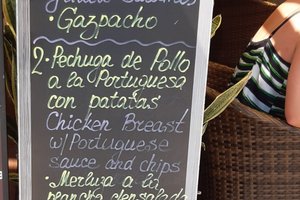 · Gazpacho
2. Pechuga de Pollo
a la Portuguesa
con patatas
Chicken Breast
w/ Portuguese
sauce and chips
· Merluza a la
plancha c/ensalada